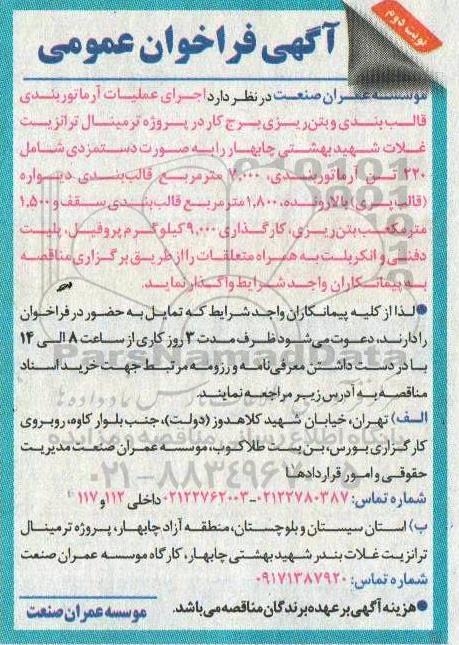 نوبت دوم
آگهی فراخوان عمومی
موسسه عمران صنعت در نظر دارد اجرای عملیات آرماتوربندی
قالب بندی و بتن ریزی برج کار در پروژه ترمینال ترانزیت
غلات شهید بهشتی چابهار را به صورت دستمزدی شامل
۲۲۰ تـن آرماتوربندی، ۷,۰۰۰ مترمربع قالب‌بندی دیـواره
(قالب‌بری) بالارونده، ۱,۸۰۰ مترمربع قالب‌بندی سقف و ۱,۵۰۰
مترمکعب بتن‌ریزی، کارگذاری ۹,۰۰۰ کیلوگرم پروفیل، پلیت
دفنی و انکرپلت به همراه متعلقات را از طریق برگزاری مناقصه
به پیمانکاران واجد شرایط واگذار نماید.
●لذا از کلیه پیمانکاران واجد شرایط که تمایل به حضور در فراخوان
را دارند، دعوت می‌شود ظرف مدت ۳ روز کاری از ساعت ۸ الی ۱۴
با در دست داشتن معرفی‌نامه و رزومه مرتبط جهت خرید اسناد
مناقصه به آدرس زیر مراجعه نمایند.
الـف) تهران، خیابان شهید کلاهدوز (دولت)، جنب بلوار کاوه، روبروی
کارگزاری بورس، بن بست طلاکوب، موسسه عمران صنعت مدیریت
حقوقی و امور قراردادها
شماره تماس: ۰۲۱۲۲۷۸۰۳۸۷-۰۲۱۲۲۷۶۲۰۰۳ داخلی ۱۱۲ و ۱۱۷
ب) استان سیستان و بلوچستان، منطقه آزاد چابهار، پروژه ترمینال
ترانزیت غلات بندر شهید بهشتی چابهار، کارگاه موسسه عمران صنعت
شماره تماس: ۰۹۱۷۱۳۸۷۹۲۰
●هزینه آگهی بر عهده برندگان مناقصه می‌باشد.
موسسه عمران صنعت
ParsNamadData
پایگاه اطلاع رسانی مناقصه و مزایده